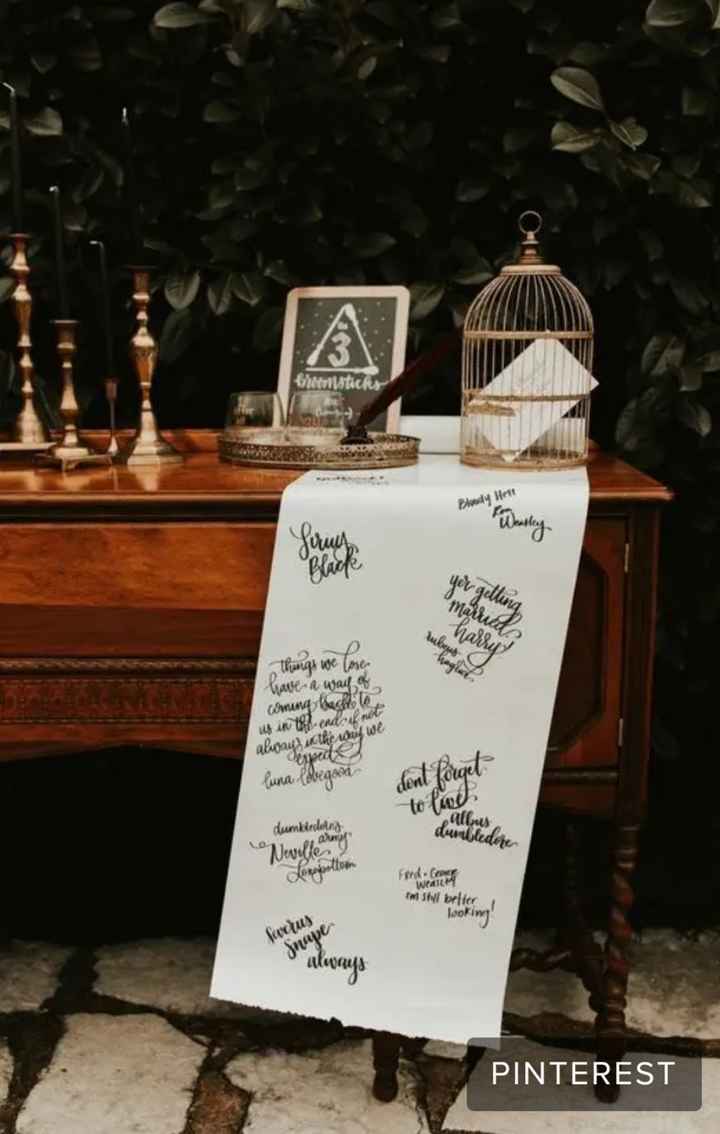 The
3
broomsticks
Bloody Hell
Ron
Weasley
Sirius
Black
yer getting
married
harry!
rubeus
hagrid
things we lose
have a way of
coming back to
us in the end if not
always in the way we
expect
luna lovegood
dont forget
to live
albus
dumbledore
dumbledores
army
Neville
Longbottom
Fred + George
Weasley
i'm still better
looking!
Severus
Snape
always
PINTEREST